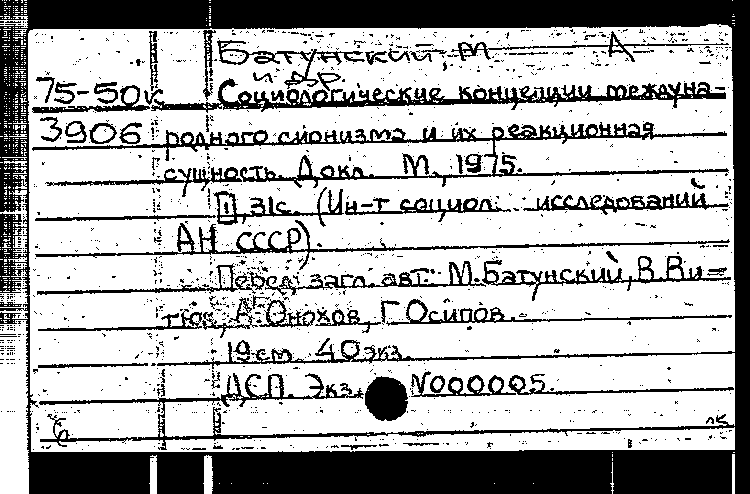 Батунский, М А
и др.
75-50к Социологические концепции междуна-
3906 родного сионизма и их реакционная
сущность. Докл. М., 1975.
[1], 31с. (Ин-т социол. исследований
АН СССР).
Перед загл. авт.: М. Батунский, В. Ви-
тюк, А. Онохов, Г. Осипов.-
19см 40экз.
ДСП. Экз. N000005.
б